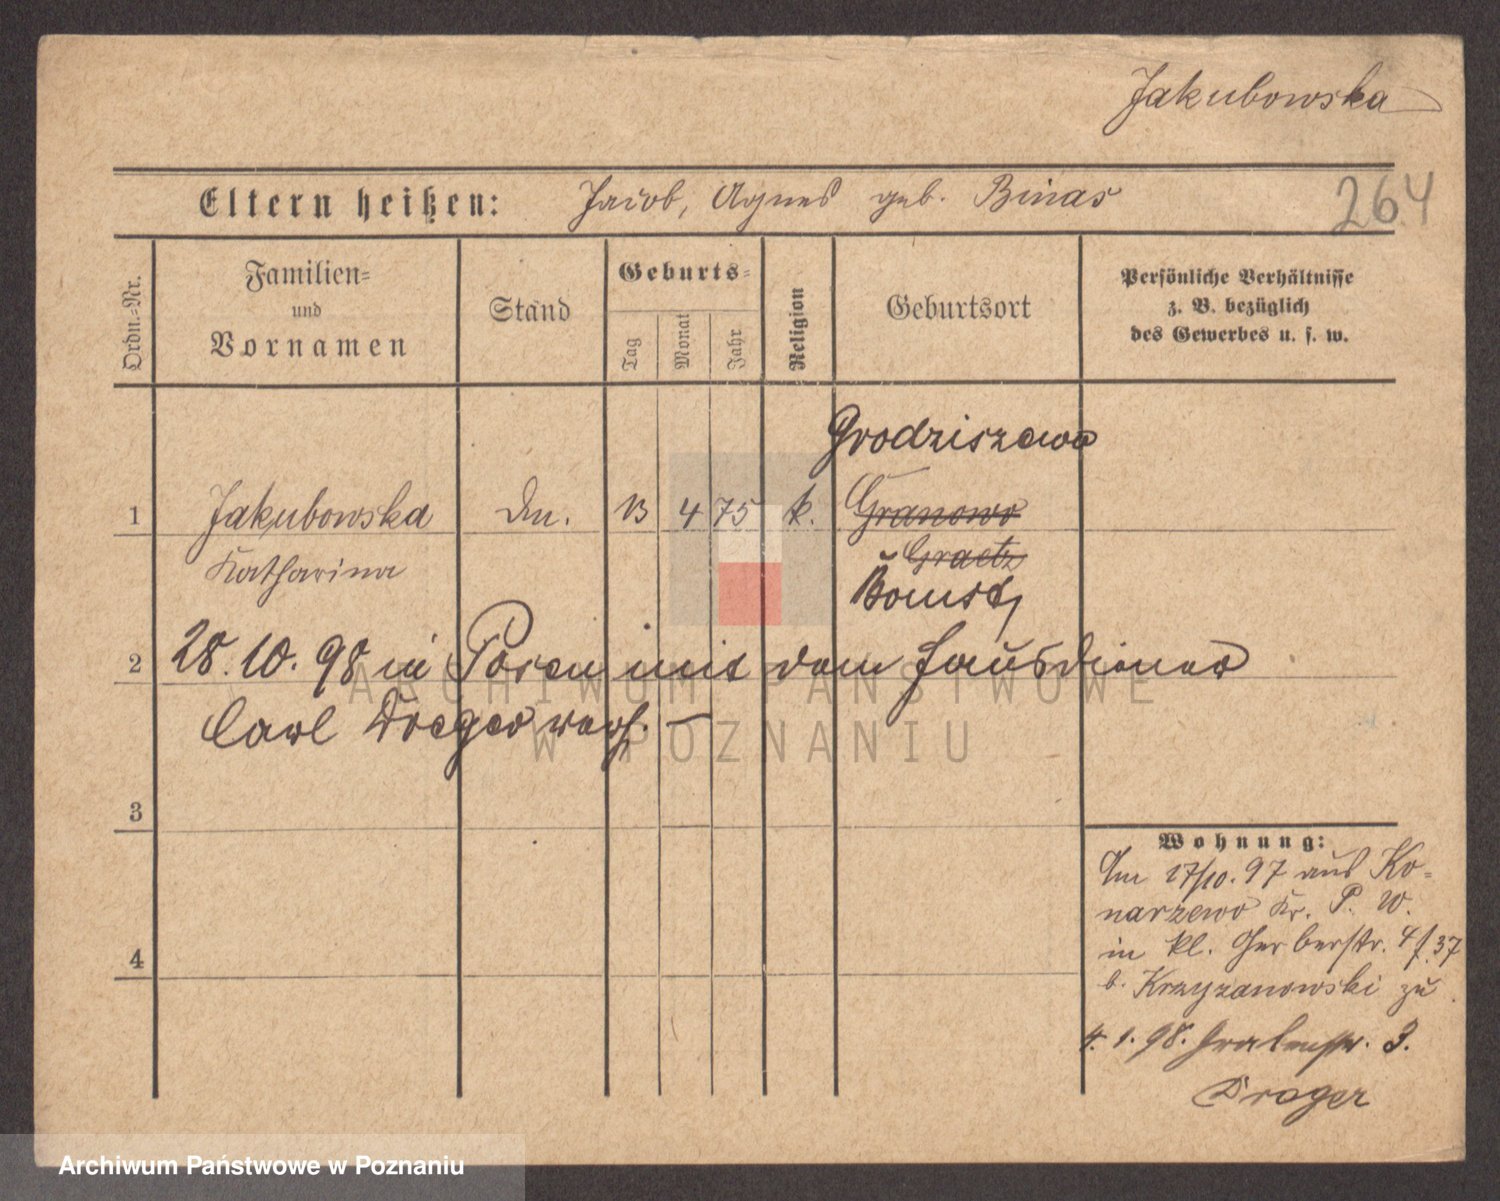 Jakubowska
Eltern heißen: Jacob, Agnes geb. Binas
264
Ordn.=Nr.
Familien=
und
Vornamen
Stand
Geburts=
Tag
Monat
Jahr
Religion
Geburtsort
Persönliche Verhältnisse
z. B. bezüglich
des Gewerbes u. s. w.
Grodziszewo
1 Jakubowska 13 4 75 k. Granowo
Katharina
Graetz
Bomst
2 28. 10. 98 in Posen mit dem Hausdiener
Carl Dreger verh. —
3
4
Wohnung:
Am 17/10. 97 aus Ko=
narzewo Kr. P. W.
in kl. Gerberstr. 4 f. 37
b. Krzyzanowski zu
4. 1. 98. Grabenstr. 3.
Dreger
ARCHIWUM PAŃSTWOWE
W POZNANIU
Archiwum Państwowe w Poznaniu